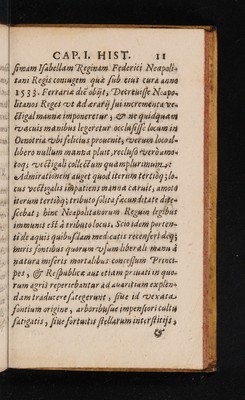 CAP. I. HIST. 11
simam Isabellam Reginam Federici Neapoli-
tani Regis coniugem quæ sub eius cura anno
1533. Ferrariæ diē obijt, Decreuisse Neapo-
litanos Reges vt ad ærarij sui incrementa ve-
ctigal mannæ imponeretur, & ne quidquam
vacuis manibus legeretur occlusisse locum in
Oenotria vbi felicius prouenit, verum locul-
libero nullum manna pluit, recluso vero amo-
toq; vectigali collectum quamplurimum. et
Admirationem auget quod iterum tertioq; lo-
cus vectigalis impatiens manna caruit, amoto
iterum tertioq; tributo solita fæcunditate dite-
scebat; hinc Neapolitanorum Regum legibus
immunis est à tributo locus. Scio idem porten-
ti de aquis quibusdam medicatis recenseri deq;
miris fontibus quorum vsum liberali manu à
natura miseris mortalibus concessum Princi-
pes, & Respublicæ aut etiam priuati in quo-
rum agris reperiebantur ad auaritiam explen-
dam traducere sategerunt, siue id vexata
fontium origine, arboribusue impensiori cultu
fatigatis, siue fortuitis stellarum interstitijs,
&